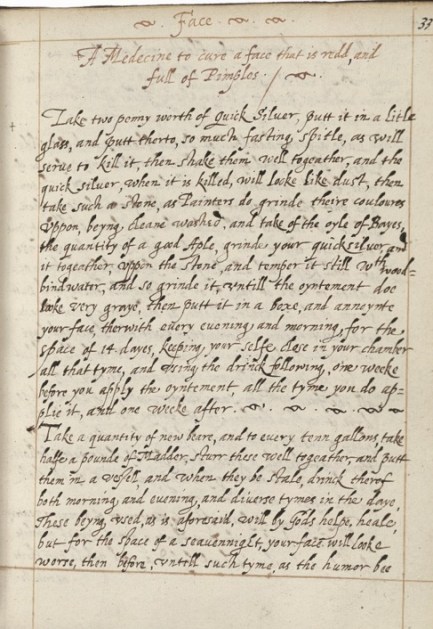 Face
37
A Medecine to cure a face that is redd, and
full of Pimples.
Take two penny worth of Quick Silver, putt it in a litle
glass, and putt therto, so much fasting, spitle, as will
serve to kill it, then shake them well togeather, and the
quick silver, when it is killed, will looke like dust, then
take such a stone, as Painters do grinde theire coulours
uppon, beyng cleane washed, and take of the oyle of Bayes,
the quantity of a good Aple, grinde your quicksilver, and
it togeather, uppon the stone, and temper it still wth wood-
bindwater, and so grinde it, untill the oyntement doe
looke very graye, then putt it in a boxe, and annoynte
your face, therwith every evening, and morning, for the
space of 14 dayes, keeping your selfe close in your chamber
all that tyme, and using the drinck following, one weeke
before you apply the oyntement, all the tyme you do ap-
plie it, and one weeke after.
Take a quantity of new beere, and to every tenn gallons, take
halfe a pounde of Madder, sturr these well togeather, and putt
them in a vessell, and when they be stale, drinck therof
both morning, and evening, and diverse tymes in the daye,
These beyng used, as is aforesaid, will by Gods helpe, heale,
but for the space of a seavennight, your face will looke
worse, then before, untill such tyme, as the humor bee